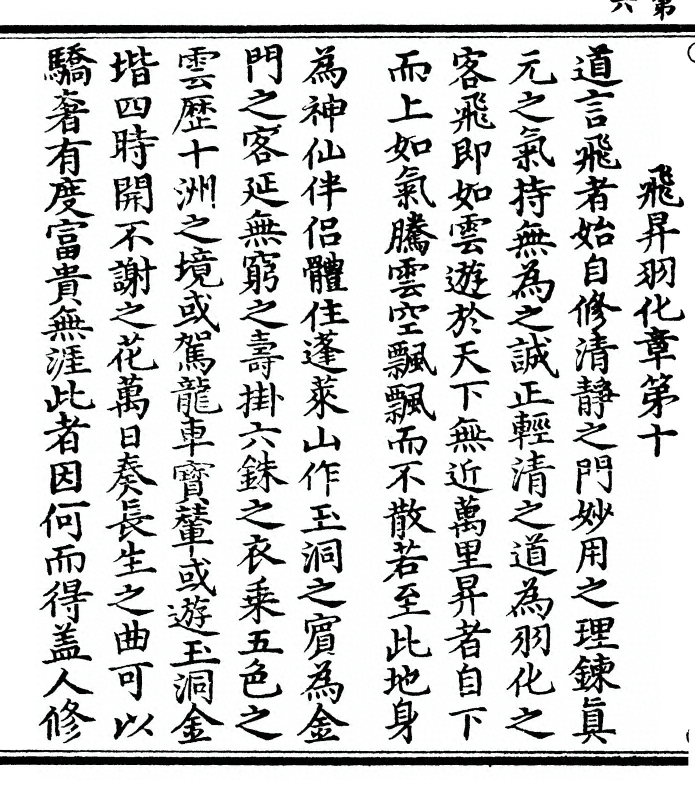 第六
飛昇羽化章第十
道言飛者始自修清靜之門妙用之理鍊真
元之氣持無為之誠正輕清之道為羽化之
客飛即如雲遊於天下無近萬里昇者自下
而上如氣騰雲空飄飄而不散若至此地身
為神仙伴侶體住蓬萊山作玉洞之賔為金
門之客延無窮之壽掛六銖之衣乘五色之
雲歷十洲之境或駕龍車寶輦或遊玉洞金
堦四時開不謝之花萬日奏長生之曲可以
驕奢有度富貴無涯此者因何而得盖人修